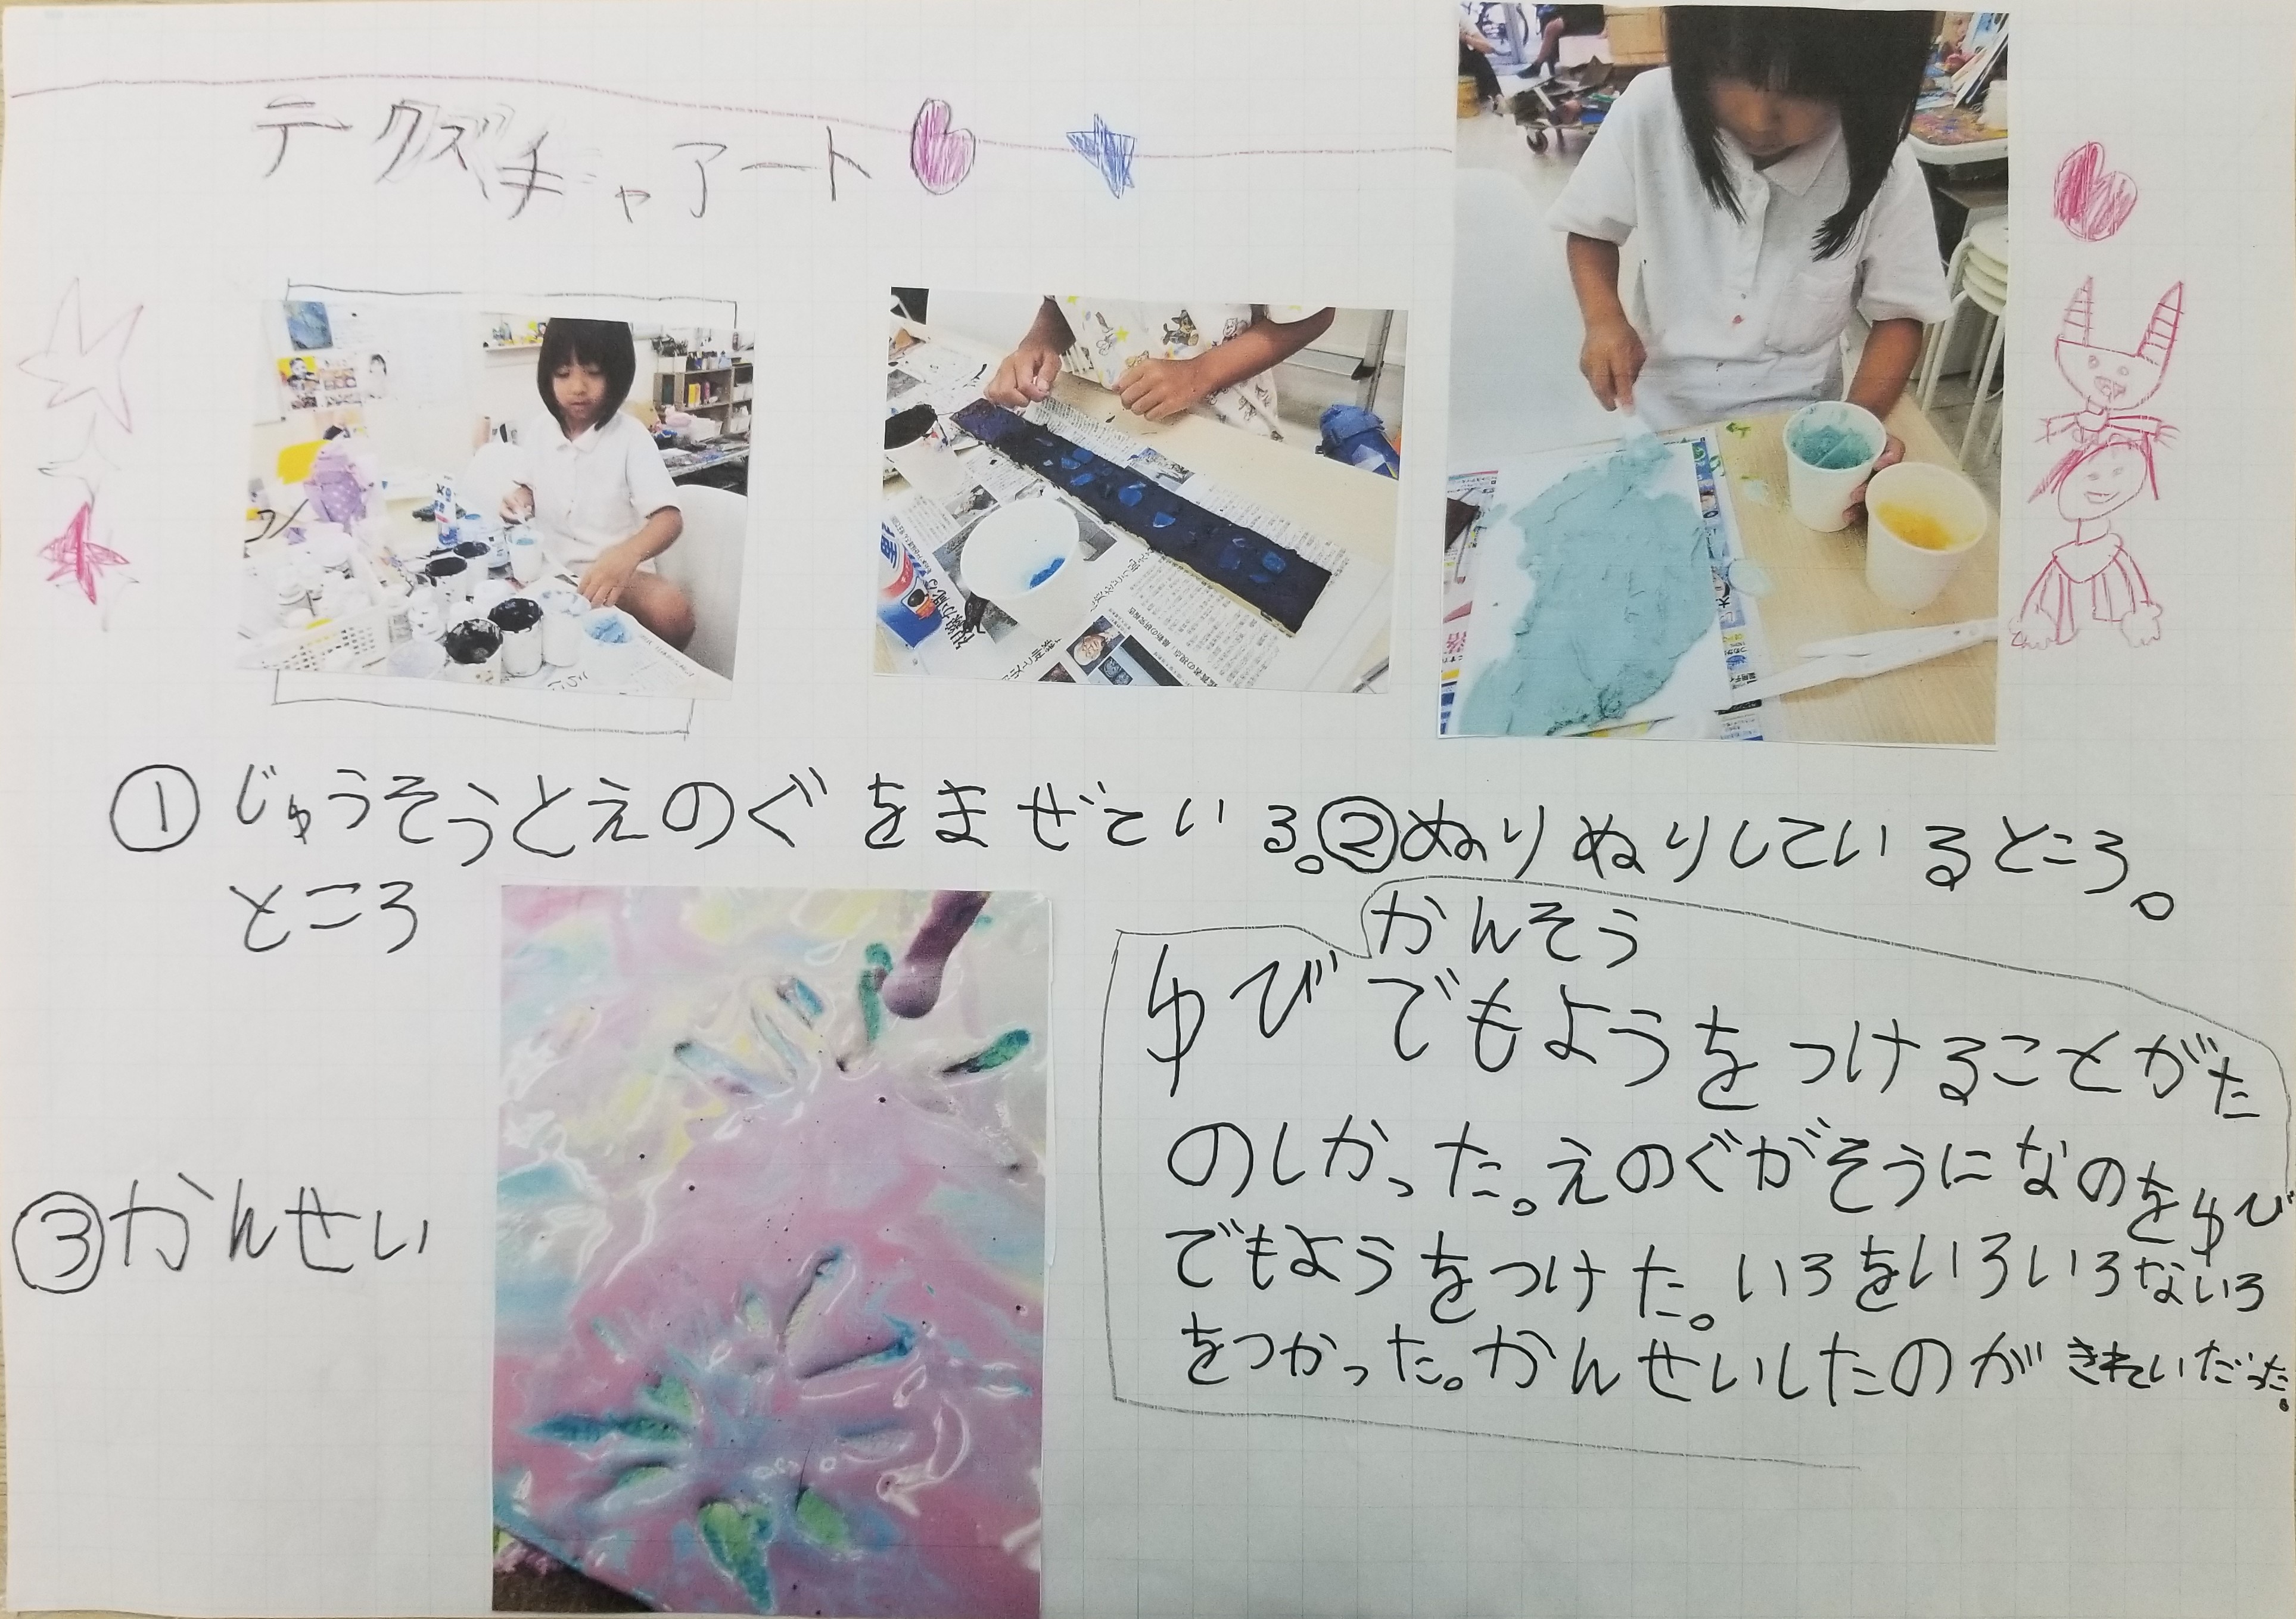 テクズチャアート
①じゅうそうとえのぐをまぜている。②ぬりぬりしているところ。
ところ
かんそう
ゆびでもようをつけることがた
のしかった。えのぐがそうになのをゆび
でもようをつけた。いろをいろいろないろ
をつかった。かんせいしたのがきれいだった。
③かんせい